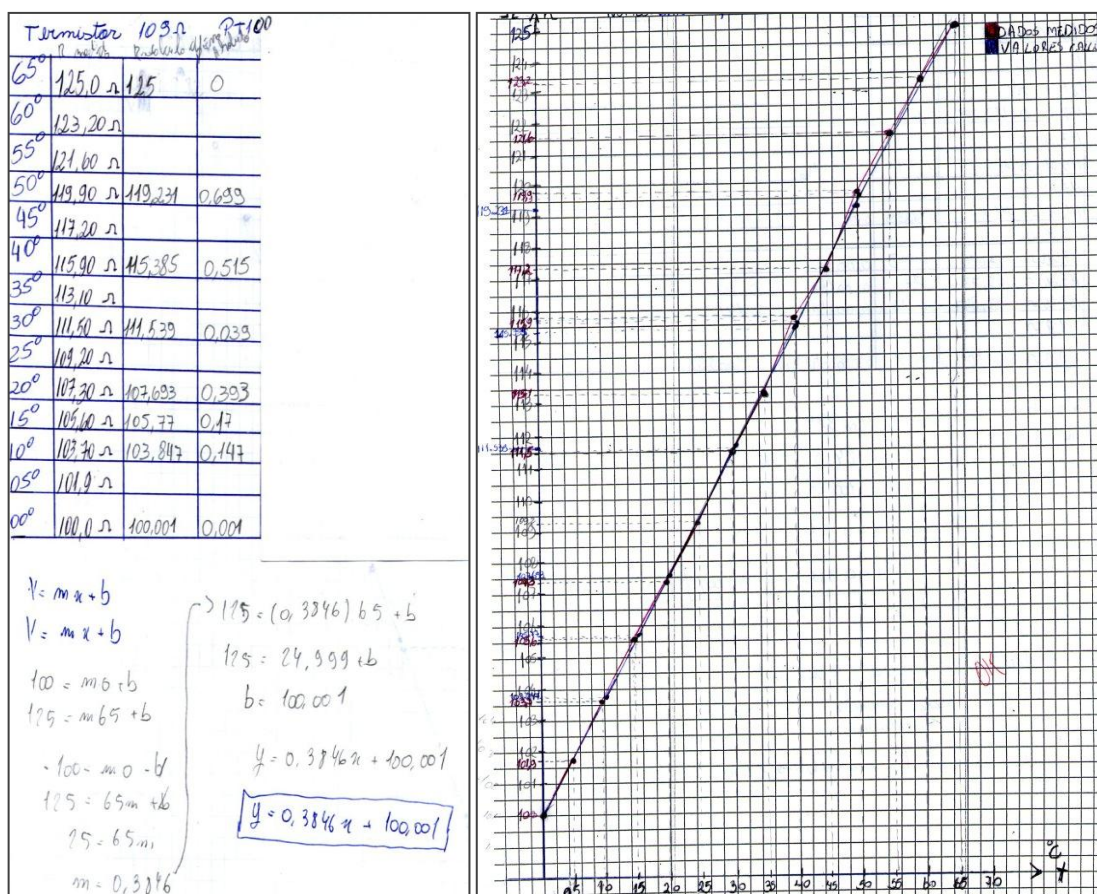 Termistor 103Ω PT100
65° 125,0 Ω 125 0
60° 123,20 Ω
55° 121,60 Ω
50° 119,90 Ω 119,231 0,699
45° 117,20 Ω
40° 115,90 Ω 115,385 0,515
35° 113,10 Ω
30° 111,50 Ω 111,539 0,039
25° 109,20 Ω
20° 107,30 Ω 107,693 0,393
15° 105,60 Ω 105,77 0,17
10° 103,70 Ω 103,847 0,147
05° 101,9 Ω
00° 100,0 Ω 100,001 0,001
Y = mx + b
Y = mx + b
100 = m0 + b
125 = m65 + b
-100 = m0 - b
125 = 65m + b
25 = 65m
m = 0,3846
125 = (0,3846) 65 + b
125 = 24,999 + b
b = 100,001
y = 0,3846x + 100,001
y = 0,3846x + 100,001
DADOS MEDIDOS
VALORES
125
124
123,2
123
122
121,6
121
120
119,9
119,231
119
118
117,2
115,9
115
114
113
112
111,5
111
110
109
108
107
106
105
103
102
101,9
101
100
OK
05 10 15 20 25 30 35 40 45 50 55 60 65 70
°C
x